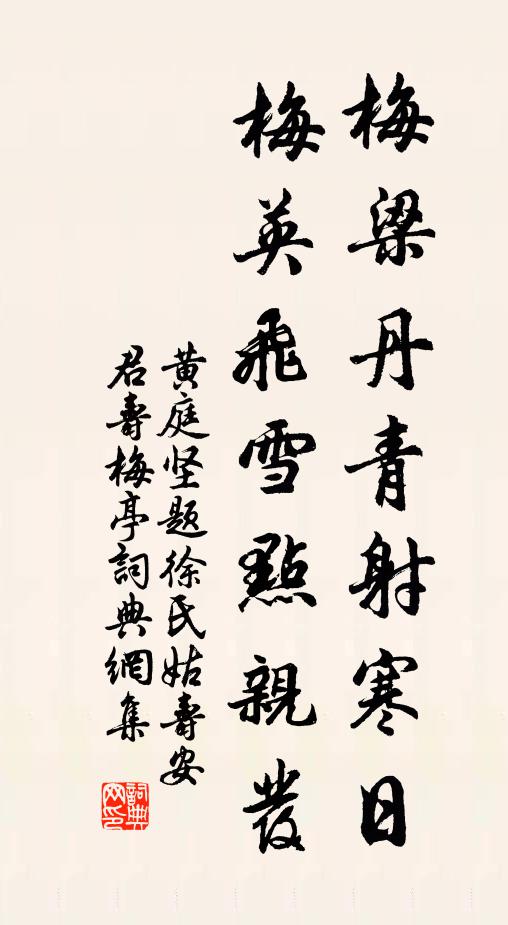 梅梁丹青射寒日
梅英飛雪點親髮
黄庭坚题徐氏姑壽安
君壽梅亭詞典網集
詞典
网印